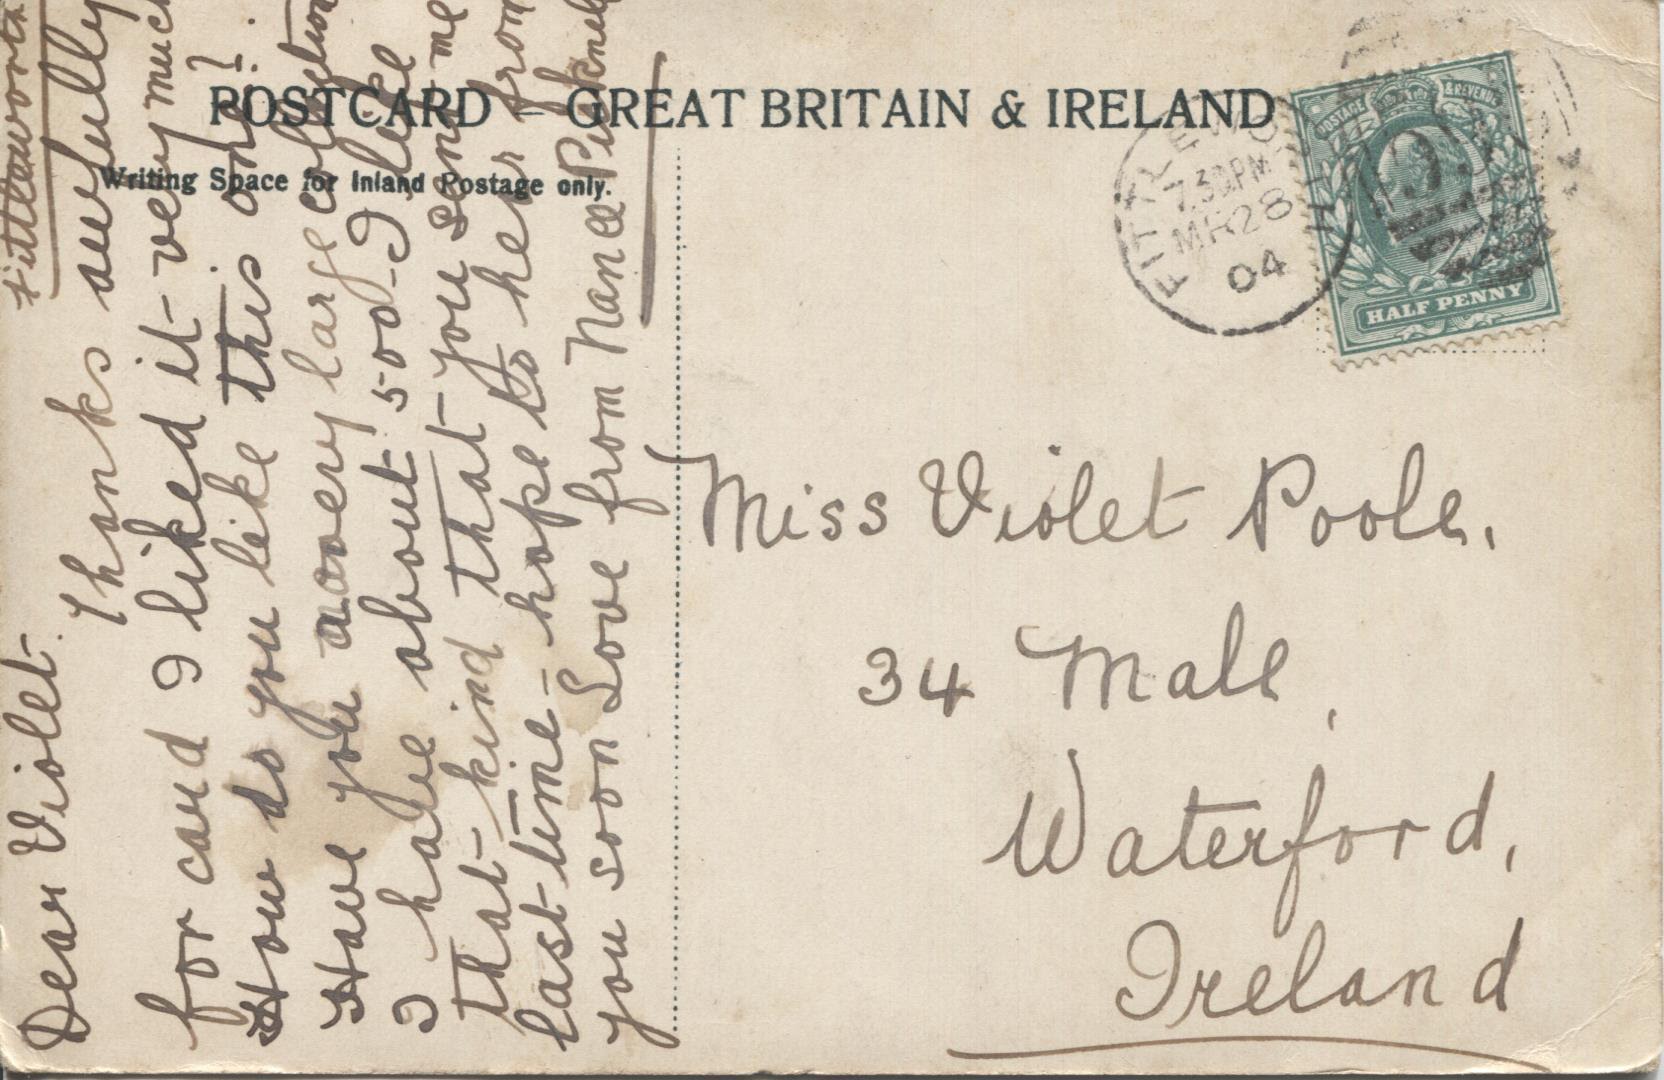 POSTCARD – GREAT BRITAIN & IRELAND
Writing Space for Inland Postage only.
Fittleworth
Dear Violet.
Thanks awfully
for card I liked it very much
How do you like this one?
Have you a very large collection
I have about 500 - I like
that kind that you send me
last time - hope to her from
you soon Love from Nance
Miss Violet Poole,
34 Mall,
Waterford,
Ireland
7.30PM
MR 28
04
POSTAGE & REVENUE
HALF PENNY